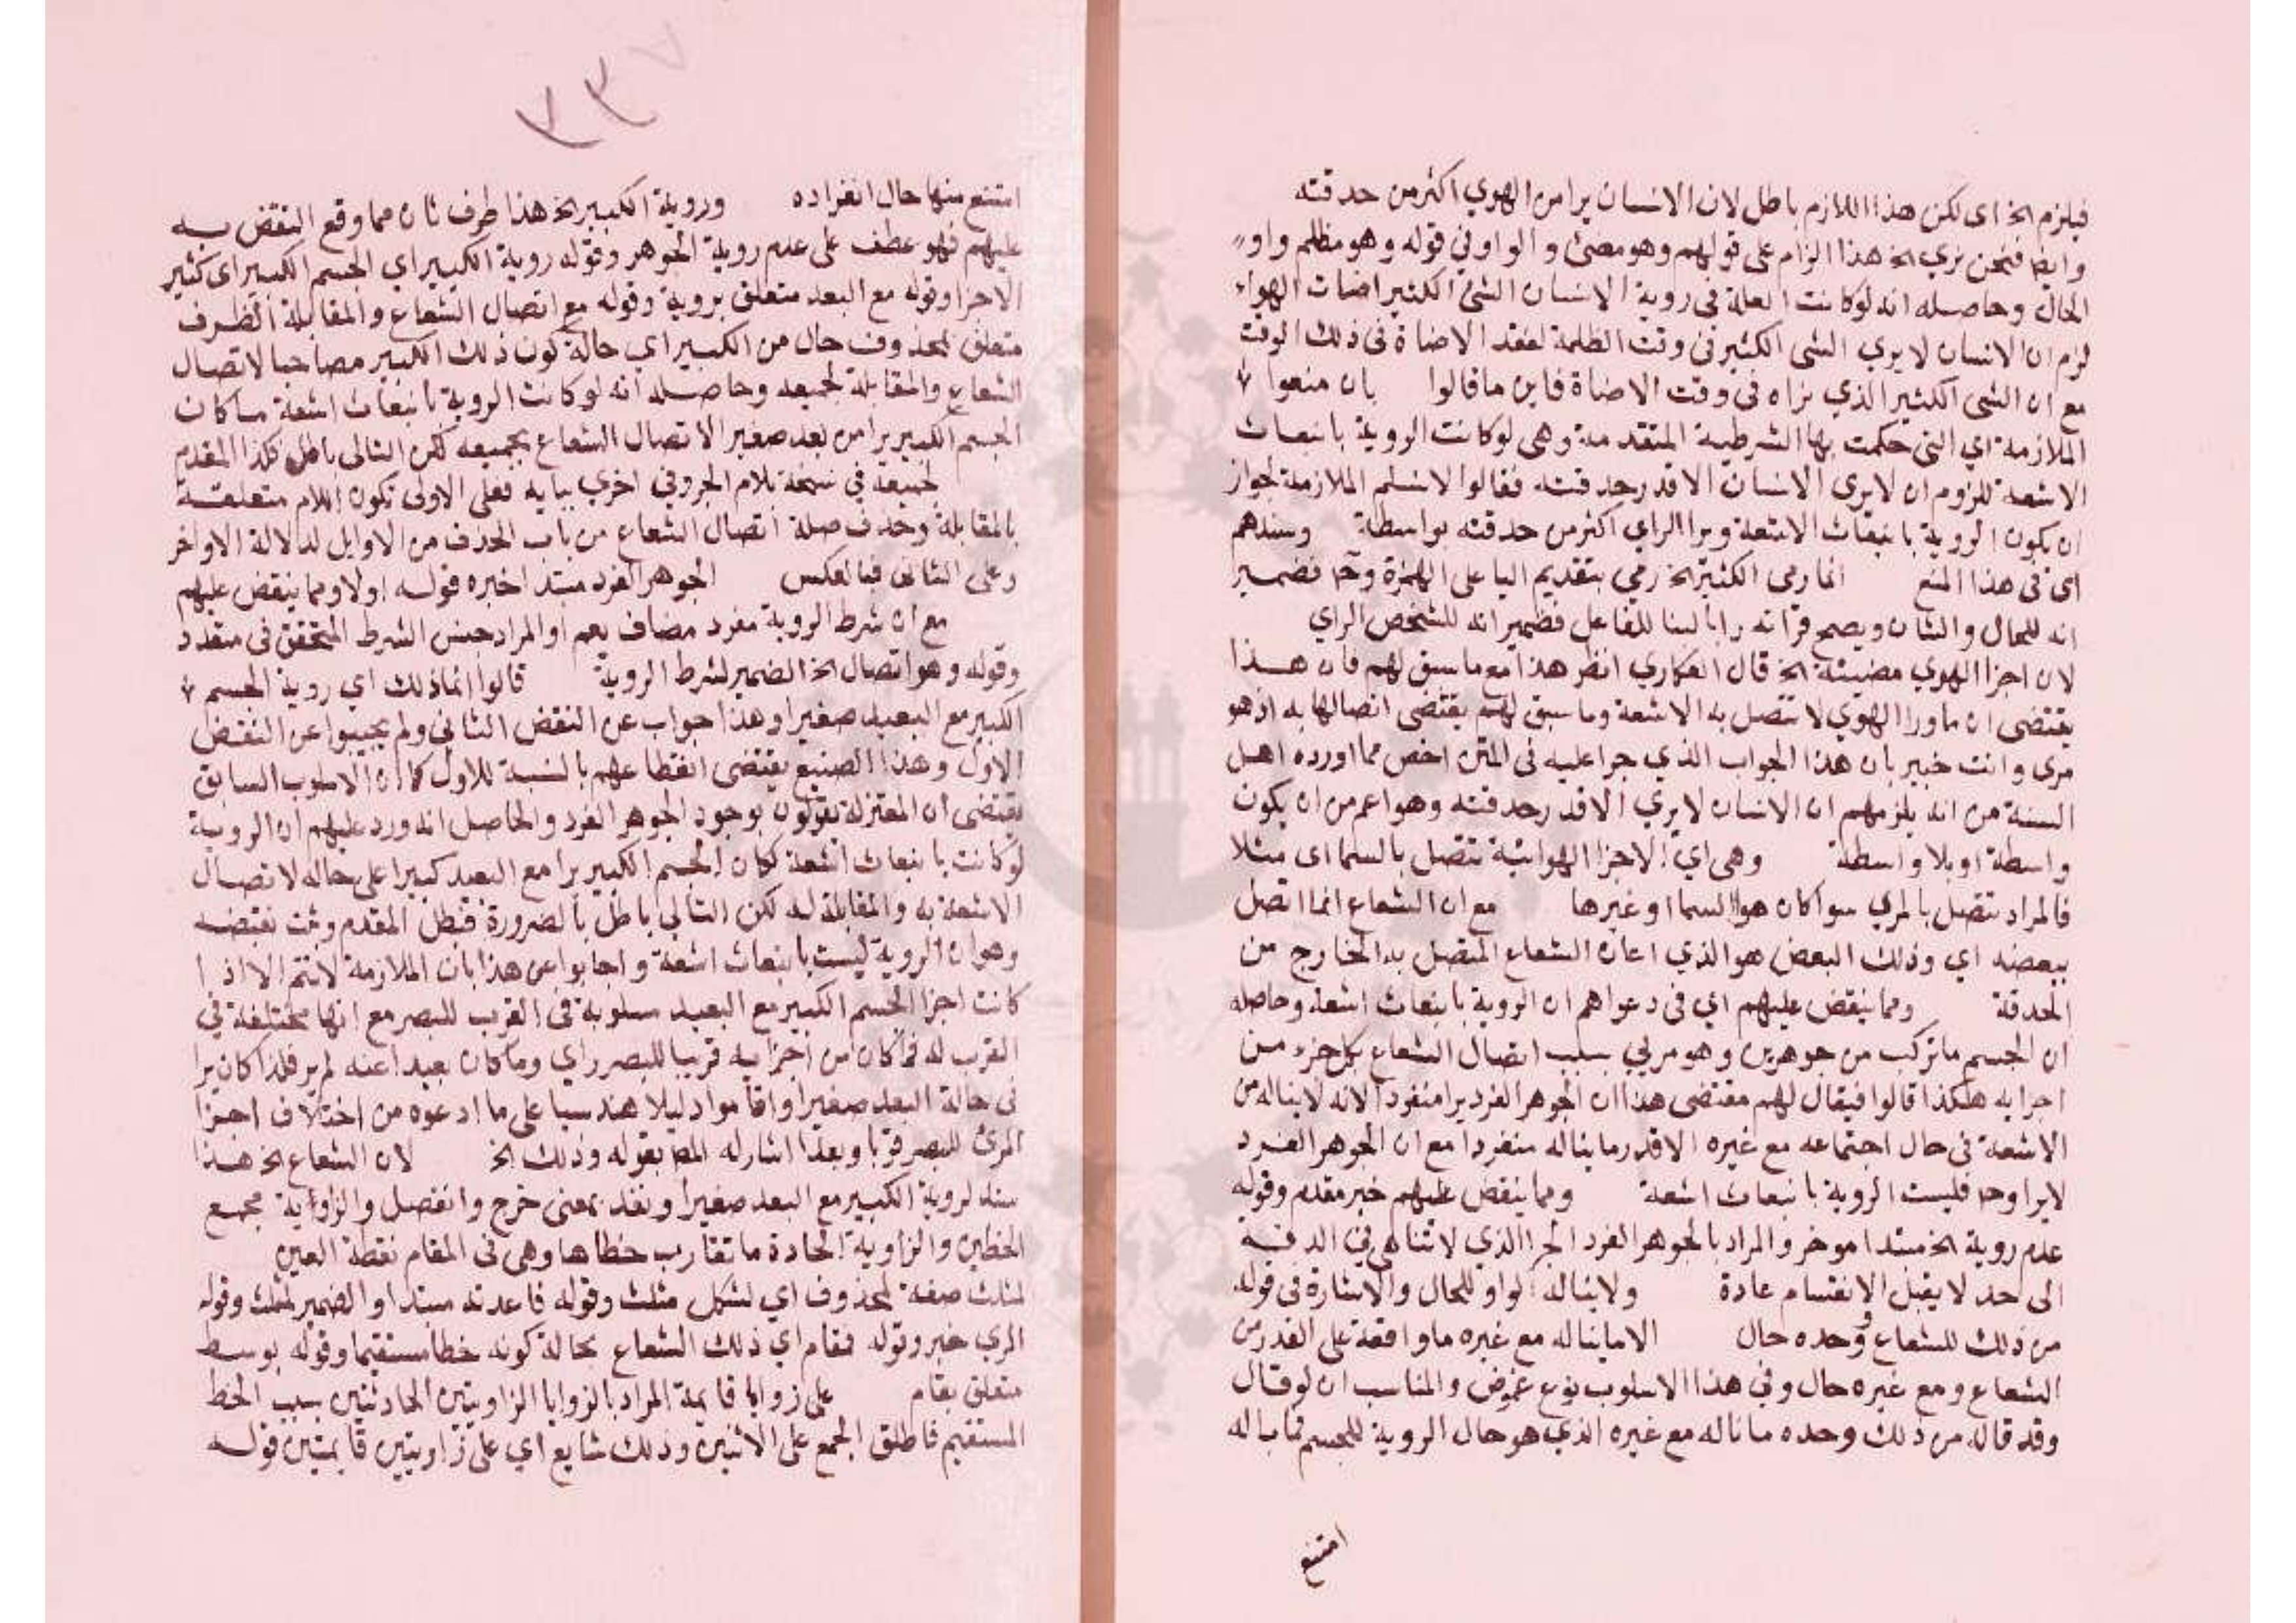 فيلزم الخ اى لكن هذا اللازم باطل لان الانسان يرا من الهوي اكثر من حدقته
وايضا فنحن نري الخ هذا الزام على قولهم وهو مضئ والواو في قوله وهو مظلم واو
الحال وحاصله انه لو كانت العلة فى روية الانسان الشئ الكثير اضات الهواء
لزم ان الانسان لا يري الشى الكثير فى وقت الظلمة لفقد الاضاة فى ذلك الوقت
مع ان الشى الكثير الذي نراه فى وقت الاضاة فاين ما قالوا بان منعوا
الملازمة اي التى حكمت بها الشرطية المتقدمة وهى لو كانت الروية بانبعاث
الاشعة للزوم ان لا يرى الانسان الا قدر حدقته فقالوا لا نسلم الملازمة لجواز
ان يكون الروية بانبعاث الاشعة ويرا الراي اكثر من حدقته بواسطة وسندهم
اى فى هذا المنع انما رمى الكثير الخ رمي بتقديم اليا على الهمزة وح فضمير
انه للحال والشان ويصح قراته رابا لبنا للفاعل فضمير انه للشخص الراي
لان اجزا الهوي مضيئة الخ قال العكاري انظر هذا مع ما سبق لهم فان هذا
يقتضى ان ما ورا الهوي لا تتصل به الاشعة وما سبق لهم يقتضى اتصالها به اذ هو
مرى وانت خبير بان هذا الجواب الذي جرا عليه فى المتن اخص مما اورده اهل
السنة من انه يلزمهم ان الانسان لا يري الا قدر حدقته وهو اعم من ان يكون
واسطة او بلا واسطة وهى اي الاجزا الهوائية تتصل بالسما اى مثلا
فالمراد تتصل بالمري سوا كان هو السما او غيرها مع ان الشعاع انما اتصل
ببعضه اي وذلك البعض هو الذي اعان الشعاع المتصل به الخارج من
الحدقة ومما ينقض عليهم اي فى دعواهم ان الروية بانبعاث اشعة وحاصله
ان الجسم ما تركب من جوهرين وهو مري بسبب اتصال الشعاع بكل جزء من
اجزايه هكذا قالوا فيقال لهم مقتضى هذا ان الجوهر الفرد يرا منفردا لانه لا يناله من
الاشعة فى حال اجتماعه مع غيره الا قدر ما يناله منفردا مع ان الجوهر الفرد
لا يرا وح فليست الروية بانبعاث اشعة ومما ينقض عليهم خبر مقدم وقوله
عدم روية الخ مبتدا موخر والمراد بالجوهر الفرد الجزا الذي لا تناهى فى الدقة
الى حد لا يقبل الانقسام عادة ولا يناله الواو للحال والاشارة فى قوله
من ذلك للشعاع ووحده حال الا ما يناله مع غيره ما واقعة على القدر من
الشعاع ومع غيره حال وفى هذا الاسلوب نوع غموض والمناسب ان لو قال
وقد قاله من ذلك وحده ما ناله مع غيره الذي هو حال الروية للجسم فما باله
امتنع
امتنع منها حال انفراده وروية الكبير الخ هذا طرف ثان مما وقع النقض به
عليهم فهو عطف على عدم روية الجوهر وقوله روية الكبير اي الجسم الكبير اى كثير
الاجزا وقوله مع البعد متعلق بروية وقوله مع اتصال الشعاع والمقابلة الظرف
متعلق بمحذوف حال من الكبير اي حالة كون ذلك الكبير مصاحبا لاتصال
الشعاع والمقابلة لجميعه وحاصله انه لو كانت الروية بانبعاث اشعة ما كان
الجسم الكبير يرا من بعد صغيرا لاتصال الشعاع بجميعه لكن التالى باطل فكذا المقدم
لجميعه في نسخة بلام الجر وفي اخري ببايه فعلى الاولى تكون اللام متعلقة
بالمقابلة وحذف صلة اتصال الشعاع من باب الحذف من الاوايل لدلالة الاواخر
وعلى الثانى فبالعكس الجوهر الفرد مبتدا خبره قوله اولا ومما ينقض عليهم
مع ان شرط الروية مفرد مضاف يعم او المراد جنس الشرط المتحقق فى متعدد
وقوله وهو اتصال الخ الضمير لشرط الروية قالوا انما ذلك اي روية الجسم
الكبير مع البعيد صغيرا وهذا جواب عن النقض الثانى ولم يجيبوا عن النقض
الاول وهذا الصنيع يقتضى انقطاعهم بالنسبة للاول كما ان الاسلوب السابق
يقتضى ان المعتزلة يقولون بوجود الجوهر الفرد والحاصل انه ورد عليهم ان الروية
لو كانت بانبعاث اشعة لكان الجسم الكبير يرا مع البعيد كبيرا على حاله لاتصال
الاشعة به والمقابلة له لكن التالي باطل بالضرورة فبطل المقدم وثبت نقيضه
وهو ان الروية ليست بانبعاث اشعة واجابوا عن هذا بان الملازمة لا تتم الا اذا
كانت اجزا الجسم الكبير مع البعيد مسلوبة فى القرب للبصر مع انها مختلفة في
القرب له فما كان من اجزايه قريبا للبصر راي وما كان بعيدا عنه لم ير فلذا كان يرا
فى حالة البعد صغيرا واقاموا دليلا هندسيا على ما ادعوه من اختلاف اجزا
المرئ للبصر قربا وبعدا اشار له المص بقوله وذلك الخ لان الشعاع الخ هذا
سند لروية الكبير مع البعد صغيرا ونفذ بمعنى خرج وانفصل والزاوية مجمع
الخطين والزاوية الحادة ما تقارب خطاها وهى فى المقام نقطة العين
لمثلث صفة لمحذوف اي لشكل مثلث وقوله قاعدته مبتدا والضمير لمثلث وقوله
المري خبر وقوله فقام اي ذلك الشعاع بحالة كونه خطا مستقيما وقوله بوسط
متعلق بقام على زوايا قايمة المراد بالزوايا الزاويتين الحادثتين بسبب الخط
المستقيم فاطلق الجمع على الاثنين وذلك شايع اي على زاويتين قايمتين قوله